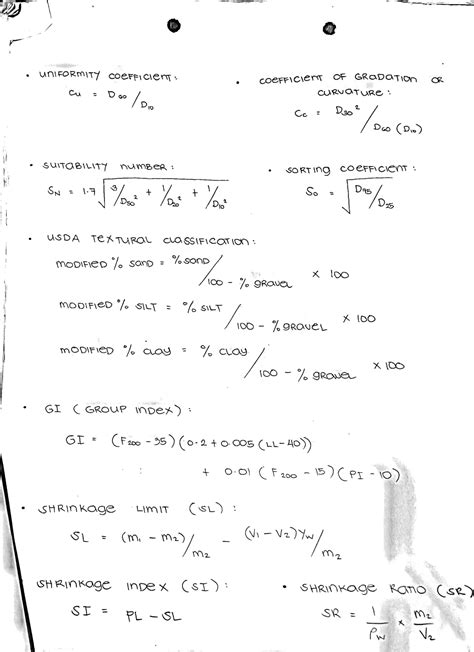 • UNIFORMITY COEFFICIENT:
Cu = D60 / D10
• COEFFICIENT OF GRADATION OR
CURVATURE:
Cc = D30² / D60 (D10)
• SUITABILITY NUMBER:
SN = 1.7 √(3/D50² + 1/D20² + 1/D10²)
• SORTING COEFFICIENT:
So = √(D75/D25)
• USDA TEXTURAL CLASSIFICATION:
MODIFIED % SAND = % SAND / 100 - % GRAVEL × 100
MODIFIED % SILT = % SILT / 100 - % GRAVEL × 100
MODIFIED % CLAY = % CLAY / 100 - % GRAVEL × 100
• GI (GROUP INDEX):
GI = (F200 - 35)(0.2 + 0.005 (LL-40))
+ 0.01 (F200 - 15)(PI - 10)
• SHRINKAGE LIMIT (SL):
SL = (m1 - m2) / m2 - (V1 - V2)γw / m2
SHRINKAGE INDEX (SI):
SI = PL - SL
• SHRINKAGE RATIO (SR)
SR = 1/ρw × m2/V2